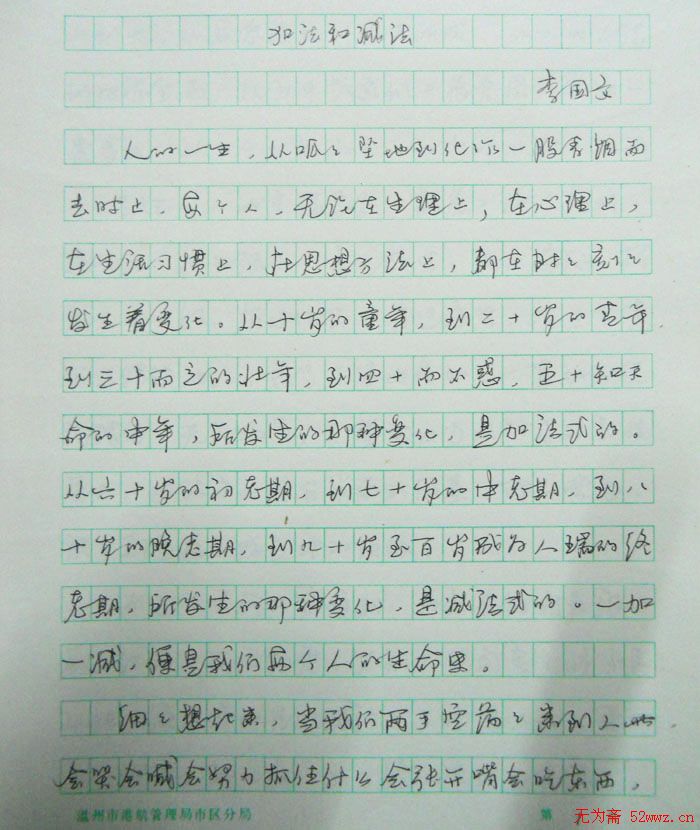 加法和减法
李国文
人的一生，从呱々坠地到化作一股青烟而
去时止，每个人，无论在生理上，在心理上，
在生活习惯上，在思想方法上，都在时々刻々
发生着变化。从十岁的童年，到二十岁的青年，
到三十而立的壮年，到四十而不惑，五十知天
命的中年，所发生的那种变化，是加法式的。
从六十岁的初老期，到七十岁的中老期，到八
十岁的晚老期，到九十岁至百岁成为人瑞的终
老期，所发生的那种变化，是减法式的。一加
一减，便是我们每个人的生命史。
细々想起来，当我们两手空荡々来到人世
会哭会喊会努力抓住什么会张开嘴会吃东西，
温州市港航管理局市区分局
第
无为斋 52wwz.cn